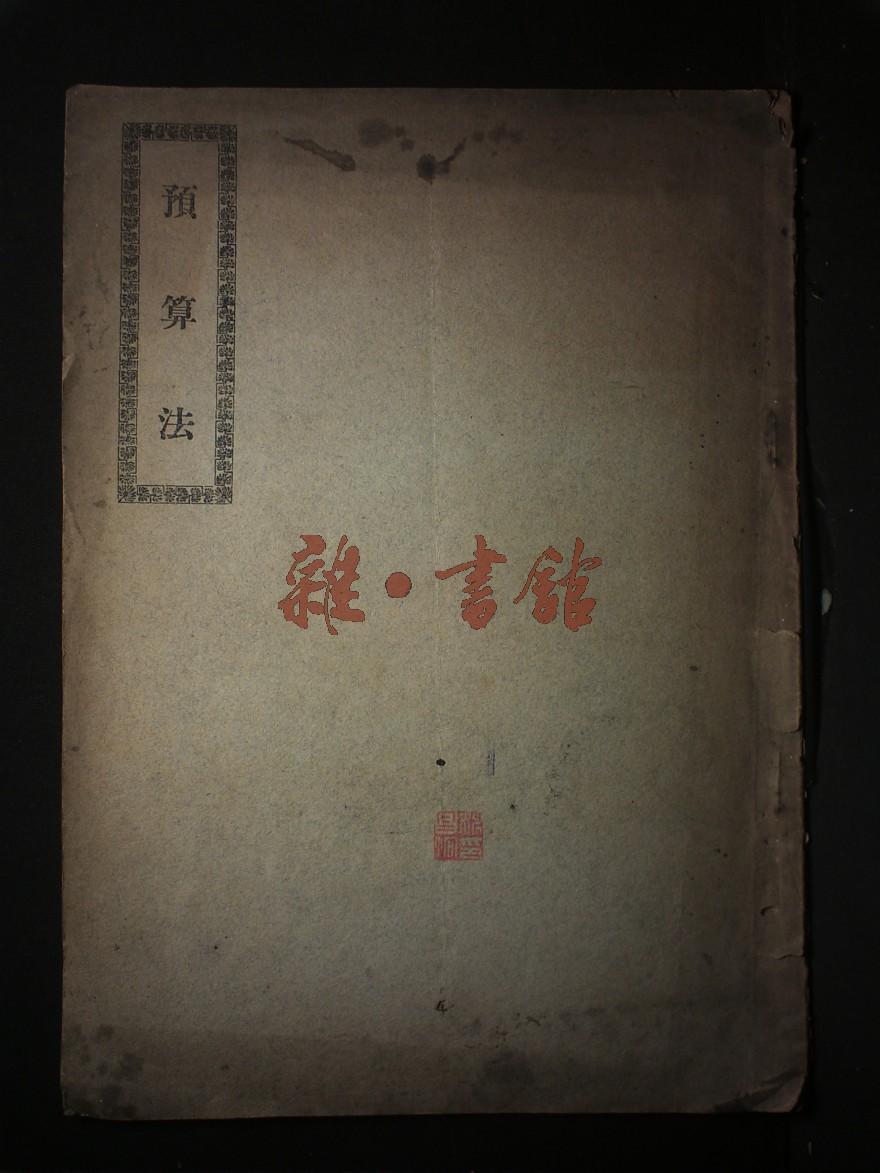 預算法
雜·書館